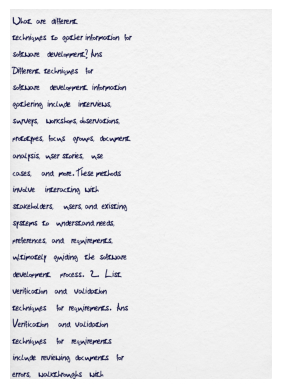 What are different
techniques to gather information for
software development? Ans
Different techniques for
software development information
gathering include interviews,
surveys, workshops, observations,
prototypes, focus groups, document
analysis, user stories, use
cases, and more. These methods
involve interacting with
stakeholders, users, and existing
systems to understand needs,
preferences, and requirements,
ultimately guiding the software
development process. 2. List
verification and validation
techniques for requirements. Ans
Verification and validation
techniques for requirements
include reviewing documents for
errors, walkthroughs with